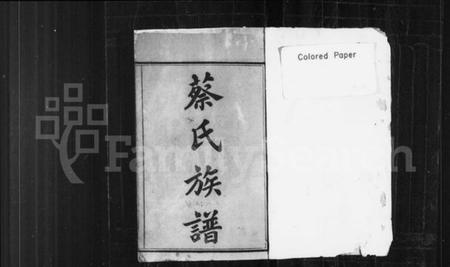 蔡氏族譜
Colored Paper
FamilySearch